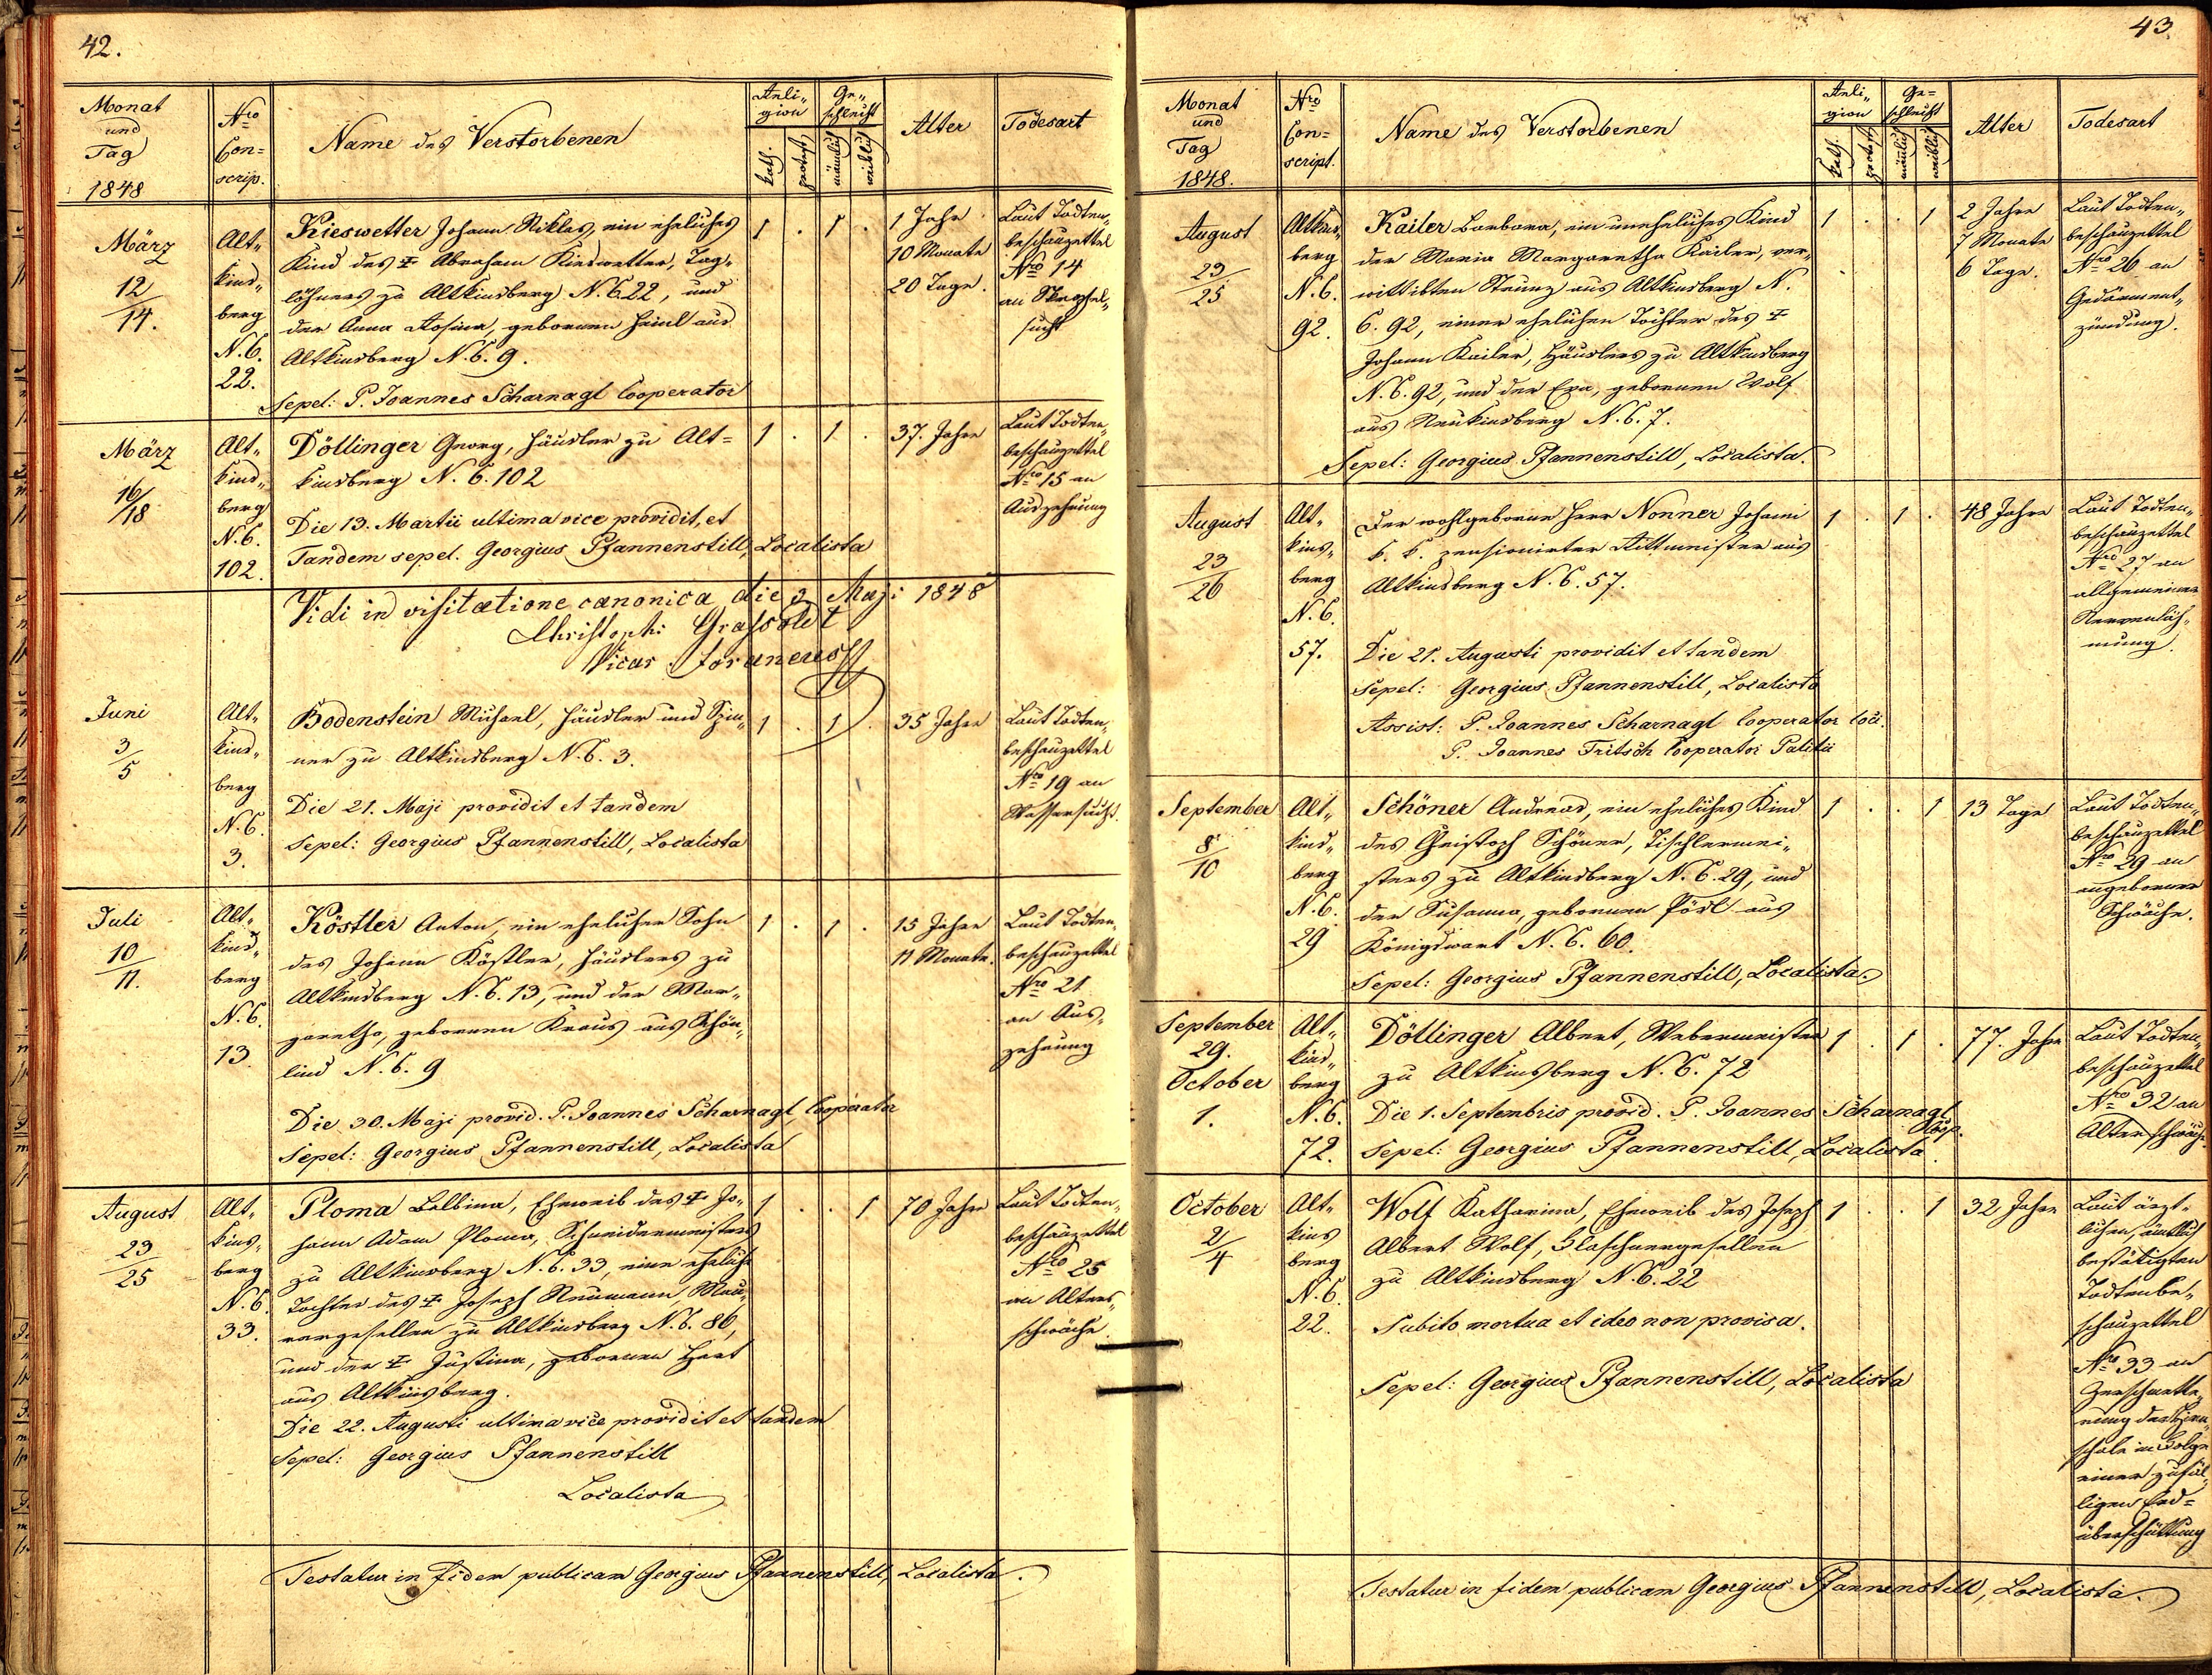 42.
Monat
und
Tag
1848
Nro
Con=
scrip.
Name des Verstorbenen
Reli„
gion
kath.
protest
Ge„
schlecht
männlich
weiblich
Alter
Todesart
März
12/14.
Alt„
kinds„
berg
N.C.
22.
Kieswetter Johann Niklas, ein eheliches
Kind des ✝ Abraham Kieswetter, Tag„
löhners zu Altkinsberg N. C. 22, und
der Anna Rosina, gebornen Heinl aus
Altkinsberg N. C. 9.
Sepel: P. Joannes Scharnagl Cooperator
1 . 1 .
1 Jahr
10 Monate
20 Tage.
Laut Todten„
beschauzettel
Nro 14
an
sucht
März
16/18
Alt„
kinds„
berg
N.C.
102.
Döllinger Georg, Häusler zu Alt=
kinsberg N. C. 102
Die 13. Martii ultima vice providit, et
Tandem sepel. Georgius Pfannenstill, Localista
1 . 1 .
37. Jahre
Laut Todten„
beschauzettel
Nro 15 an
Auszehrung
Vidi in visitatione canonica die 3 Maji 1848
Christoph: Grassoldt
Vicar. Foraneus
Juni
3/5
Alt„
kinds„
berg
N.C.
3.
Bodenstein Michael, Häusler und
ner zu Altkinsberg N. C. 3.
Die 21. Maji providit et tandem
Sepel: Georgius Pfannenstill, Localista
1 . 1 .
35 Jahre
Laut Todten„
beschauzettel
Nro 19 an
Wassersucht.
Juli
10/11.
Alt„
kinds„
berg
N.C.
13
Köstler Anton, ein ehelicher Sohn
des Johann Köstler, Häuslers zu
Altkinsberg N. C. 13, und der Mar„
garetha, gebornen Kraus aus Schön„
lind N. C. 9
Die 30. Maji provid. P. Joannes Scharnagl, Cooperator
Sepel: Georgius Pfannenstill, Localista
1 . 1 .
15 Jahre
11 Monate.
Laut Todten„
beschauzettel
Nro 21
an Aus„
zehrung
August
23/25
Alt„
kins„
berg
N.C.
33.
Ploma Balbina, Eheweib des ✝ Jo„
hann Adam Ploma, Schneidermeisters
zu Altkinsberg N. C. 33, eine eheliche
Tochter des ✝ Joseph Neumann, Mau„
rergesellen zu Altkinsberg N. C. 86,
und der ✝ Justina, gebornen Hart
aus Altkinsberg.
Die 22. Augusti ultima vice providit et tandem
Sepel: Georgius Pfannenstill
Localista
1 . . 1
70 Jahre
Laut Todten„
beschauzettel
Nro 25
an Alters„
schwäche.
Testatur in fidem publicam Georgius Pfannenstill, Localista.
43.
Monat
und
Tag
1848.
Nro
Con=
script.
Name des Verstorbenen
Reli„
gion
kath.
protest
Ge=
schlecht
männlich
weiblich
Alter
Todesart
August
23/25
Altkins„
berg
N.C.
92.
Kailer Barbara, ein uneheliches Kind
der Maria Margaretha Kailer, ver„
wittibten Strunz aus Altkinsberg N.
C. 92, einer ehelichen Tochter des ✝
Johann Kailer, Häuslers zu Altkinsberg
N. C. 92, und der Eva, gebornen Wolf
aus Neukinsberg N. C. 7.
Sepel: Georgius Pfannenstill, Localista.
1 . . 1
2 Jahre
7 Monate
6 Tage.
Laut Todten„
beschauzettel
Nro 26 an
Gedärment„
zündung.
August
23/26
Alt„
kins„
berg
N.C.
57.
Der wohlgeborne Herr Nonner Johann
k. k. pensionirter Rittmeister aus
Altkinsberg N. C. 57.
Die 21. Augusti providit et tandem
Sepel: Georgius Pfannenstill, Localista
Assist: P. Joannes Scharnagl Cooperator loci.
P. Joannes Fritsch Cooperator Palitii
1 . 1 .
48 Jahre
Laut Todten„
beschauzettel
Nro 27 an
allgemeiner
Nervenläh„
mung.
September
8/10
Alt„
kinds„
berg
N.C.
29
Schöner Andreas, ein eheliches Kind
des Christoph Schöner, Tischlermei„
sters zu Altkinsberg N. C. 29, und
der Susanna, gebornen Pösl aus
Königswart N. C. 60.
Sepel: Georgius Pfannenstill, Localista.
1 . . 1
13 Tage
Laut Todten„
beschauzettel
Nro 29 an
angeborner
Schwäche.
September
29.
October
1.
Alt„
kinds„
berg
N.C.
72.
Döllinger Albert, Webermeister
zu Altkinsberg N. C. 72
Die 1. Septembris provid. P. Joannes Scharnagl
Coop.
Sepel: Georgius Pfannenstill, Localista.
1 . 1 .
77. Jahre
Laut Todten„
beschauzettel
Nro 32 an
Altersschwäche
October
2/4
Alt„
kins
berg
N.C.
22.
Wolf Katharina, Eheweib des Joseph
Albert Wolf, Flaschnergesellen
zu Altkinsberg N. C. 22
Subito mortua et ideo non provisa.
Sepel: Georgius Pfannenstill, Localista
1 . . 1
32 Jahre
Laut ärzt„
lichen, ämtlich
bestätigten
Todtenbe„
schauzettel
Nro 33 an
Zerschmette„
rung der Hirn„
schale in Folge
einer zufäl„
ligen Erd=
überschüttung
Testatur in fidem publicam Georgius Pfannenstill, Localista.